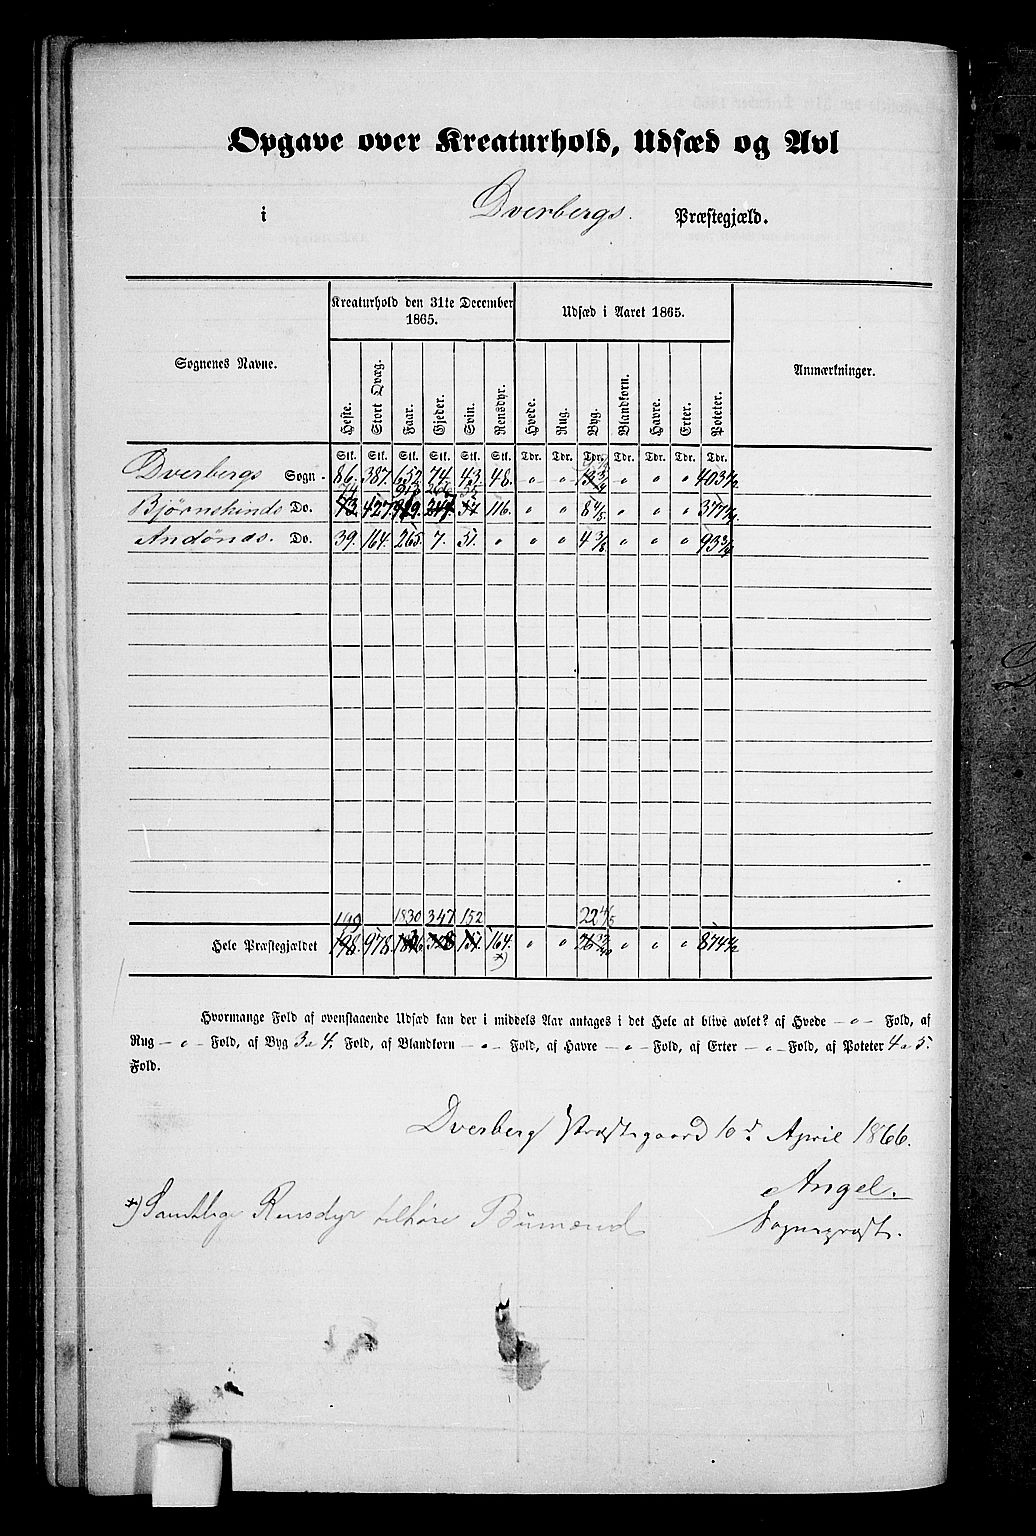 Opgave over Kreaturhold, Udsæd og Avl
i Dverbergs Præstegjæld.
Sognenes Navne. Kreaturhold den 31te December 1865. Udsæd i Aaret 1865. Anmærkninger.
Heste. Stort Qvæg. Faar. Gjeder. Svin. Rensdyr. Hvede. Rug. Byg. Blandkorn. Havre. Erter. Poteter.
Stk. Stk. Stk. Stk. Stk. Stk. Tdr. Tdr. Tdr. Tdr. Tdr. Tdr. Tdr.
Dverbergs Sogn. 86. 387. 652. 74. 43. 48. " " " " " 403 1/2
74 913 266
Bjørnskinds Do. 73. 427. 247 57. 116. " " 8 4/8 " " " 377 1/4
Andønæs. Do. 39. 164. 265. 7. 51. " " " 4 3/8 " " " 93 3/4
199 1830 347 152 22 4/5
Hele Præstegjældet 198. 978. 151. 164. " " " " " 874 1/2
*)
Hvormange Fold af ovenstaaende Udsæd kan der i middels Aar antages i det Hele at blive avlet? af Hvede — " — Fold, af
Rug — " — Fold, af Byg 3 a 4. Fold, af Blandkorn — " — Fold, af Havre — " — Fold, af Erter — " — Fold, af Poteter 4 a 5.
Fold.
Dverberg Præstegaard 10d April 1866.
Angel.
*) Samtlige Rensdyr tilhøre Bumænd
Sognepræst.